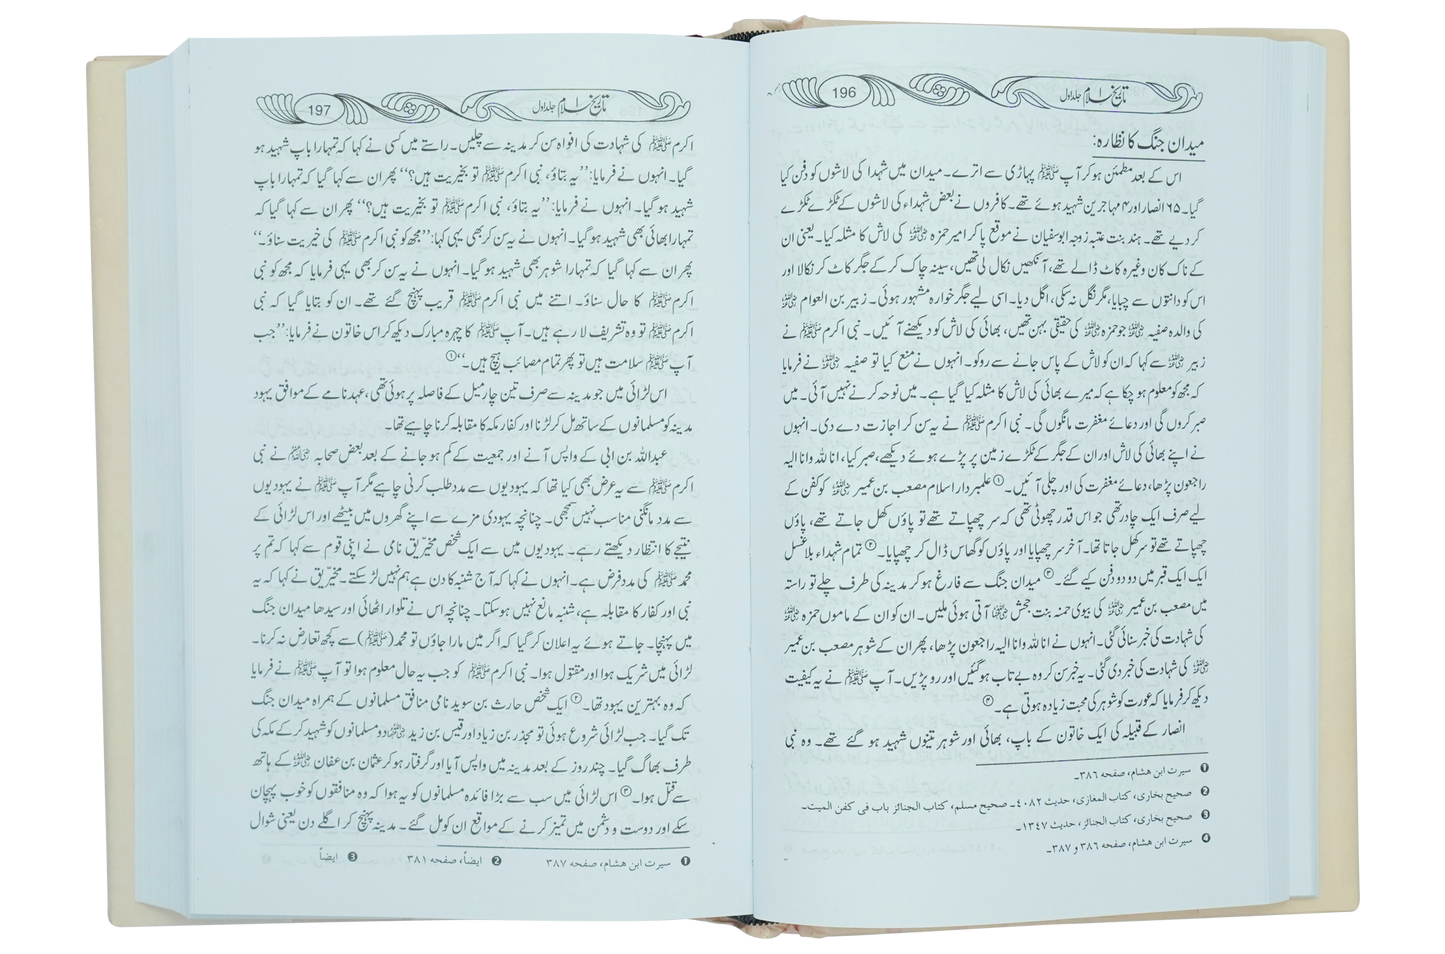 196
تاریخ اسلام جلد اول
میدان جنگ کا نظارہ:
اس کے بعد مطمئن ہوکر آپ ﷺ پہاڑی سے اترے۔ میدان میں شہدا کی لاشوں کو دفن کیا
گیا۔ ۶۵ انصار اور ۴ مہاجرین شہید ہوئے تھے۔ کافروں نے بعض شہداء کی لاشوں کے ٹکڑے ٹکڑے
کر دیے تھے۔ ہند بنت عتبہ زوجہ ابوسفیان نے موقع پا کر امیر حمزہ رضی اللہ عنہ کی لاش کا مثلہ کیا۔ یعنی ان
کے ناک کان وغیرہ کاٹ ڈالے تھے، آنکھیں نکال لی تھیں، سینہ چاک کر کے جگر کاٹ کر نکالا اور
اس کو دانتوں سے چبایا، مگر نگل نہ سکی، اگل دیا۔ اسی لیے جگر خوارہ مشہور ہوئی۔ زبیر بن العوام رضی اللہ عنہ
کی والدہ صفیہ رضی اللہ عنہا جو حمزہ رضی اللہ عنہ کی حقیقی بہن تھیں، بھائی کی لاش کو دیکھنے آئیں۔ نبی اکرم ﷺ نے
زبیر رضی اللہ عنہ سے کہا کہ ان کو لاش کے پاس جانے سے روکو۔ انہوں نے منع کیا تو صفیہ رضی اللہ عنہا نے فرمایا
کہ مجھ کو معلوم ہو چکا ہے کہ میرے بھائی کی لاش کا مثلہ کیا گیا ہے۔ میں نوحہ کرنے نہیں آئی۔ میں
صبر کروں گی اور دعائے مغفرت مانگوں گی۔ نبی اکرم ﷺ نے یہ سن کر اجازت دے دی۔ انہوں
نے اپنے بھائی کی لاش اور ان کے جگر کے ٹکڑے زمین پر پڑے ہوئے دیکھے، صبر کیا، انا للہ وانا الیہ
راجعون پڑھا، دعائے مغفرت کی اور چلی آئیں۔① علمبردار اسلام مصعب بن عمیر رضی اللہ عنہ کو کفن کے
لیے صرف ایک چادر تھی جو اس قدر چھوٹی تھی کہ سر چھپاتے تھے تو پاؤں کھل جاتے تھے، پاؤں
چھپاتے تھے تو سر کھل جاتا تھا۔ آخر سر چھپایا اور پاؤں کو گھاس ڈال کر چھپایا۔② تمام شہداء بلا غسل
ایک ایک قبر میں دو دو دفن کیے گئے۔③ میدان جنگ سے فارغ ہو کر مدینہ کی طرف چلے تو راستہ
میں مصعب بن عمیر رضی اللہ عنہ کی بیوی حمنہ بنت جحش رضی اللہ عنہا آتی ہوئی ملیں۔ ان کو ان کے ماموں حمزہ رضی اللہ عنہ
کی شہادت کی خبر سنائی گئی۔ انہوں نے انا للہ وانا الیہ راجعون پڑھا، پھر ان کے شوہر مصعب بن عمیر
رضی اللہ عنہ کی شہادت کی خبر دی گئی۔ یہ خبر سن کر وہ بے تاب ہوگئیں اور رو پڑیں۔ آپ ﷺ نے یہ کیفیت
دیکھ کر فرمایا کہ عورت کو شوہر کی محبت زیادہ ہوتی ہے۔④
انصار کے قبیلہ کی ایک خاتون کے باپ، بھائی اور شوہر تینوں شہید ہو گئے تھے۔ وہ نبی
❶ سیرت ابن ہشام، صفحہ ۳۸۶۔
❷ صحیح بخاری، کتاب المغازی، حدیث ۴۰۸۲۔ صحیح مسلم، کتاب الجنائز باب فی کفن المیت۔
❸ صحیح بخاری، کتاب الجنائز، حدیث ۱۳۴۷۔
❹ سیرت ابن ہشام، صفحہ ۳۸۶ و ۳۸۷۔
197
تاریخ اسلام جلد اول
اکرم ﷺ کی شہادت کی افواہ سن کر مدینہ سے چلیں۔ راستے میں کسی نے کہا کہ تمہارا باپ شہید ہو
گیا۔ انہوں نے فرمایا: ”یہ بتاؤ، نبی اکرم ﷺ تو بخیریت ہیں؟“ پھر ان سے کہا گیا کہ تمہارا باپ
شہید ہوگیا۔ انہوں نے فرمایا: ”یہ بتاؤ، نبی اکرم ﷺ تو بخیریت ہیں؟“ پھر ان سے کہا گیا کہ
تمہارا بھائی بھی شہید ہوگیا۔ انہوں نے یہ سن کر بھی یہی کہا: ”مجھ کو نبی اکرم ﷺ کی خیریت سناؤ۔“
پھر ان سے کہا گیا کہ تمہارا شوہر بھی شہید ہو گیا۔ انہوں نے یہ سن کر بھی یہی فرمایا کہ مجھ کو نبی
اکرم ﷺ کا حال سناؤ۔ اتنے میں نبی اکرم ﷺ قریب پہنچ گئے تھے۔ ان کو بتایا گیا کہ نبی
اکرم ﷺ تو وہ تشریف لا رہے ہیں۔ آپ ﷺ کا چہرہ مبارک دیکھ کر اس خاتون نے فرمایا: ”جب
آپ ﷺ سلامت ہیں تو پھر تمام مصائب ہیچ ہیں۔“①
اس لڑائی میں جو مدینہ سے صرف تین چار میل کے فاصلہ پر ہوئی تھی، عہد نامے کے موافق یہود
مدینہ کو مسلمانوں کے ساتھ مل کر لڑنا اور کفار مکہ کا مقابلہ کرنا چاہیے تھا۔
عبداللہ بن ابی کے واپس آنے اور جمعیت کے کم ہو جانے کے بعد بعض صحابہ رضی اللہ عنہم نے نبی
اکرم ﷺ سے یہ عرض بھی کیا تھا کہ یہودیوں سے مدد طلب کرنی چاہیے مگر آپ ﷺ نے یہودیوں
سے مدد مانگنی مناسب نہیں سمجھی۔ چنانچہ یہودی مزے سے اپنے گھروں میں بیٹھے اور اس لڑائی کے
نتیجے کا انتظار دیکھتے رہے۔ یہودیوں میں سے ایک شخص مخیریق نامی نے اپنی قوم سے کہا کہ تم پر
محمد ﷺ کی مدد فرض ہے۔ انہوں نے کہا کہ آج شنبہ کا دن ہے ہم نہیں لڑ سکتے۔ مخیریق نے کہا کہ یہ
نبی اور کفار کا مقابلہ ہے، شنبہ مانع نہیں ہو سکتا۔ چنانچہ اس نے تلوار اٹھائی اور سیدھا میدان جنگ
میں پہنچا۔ جاتے ہوئے یہ اعلان کر گیا کہ اگر میں مارا جاؤں تو محمد (ﷺ) سے کچھ تعارض نہ کرنا۔
لڑائی میں شریک ہوا اور مقتول ہوا۔ نبی اکرم ﷺ کو جب یہ حال معلوم ہوا تو آپ ﷺ نے فرمایا
کہ وہ بہترین یہود تھا۔② ایک شخص حارث بن سوید نامی منافق مسلمانوں کے ہمراہ میدان جنگ
تک گیا۔ جب لڑائی شروع ہوئی تو مجذر بن زیاد اور قیس بن زید رضی اللہ عنہما دو مسلمانوں کو شہید کر کے مکہ کی
طرف بھاگ گیا۔ چند روز کے بعد مدینہ میں واپس آیا اور گرفتار ہو کر عثمان بن عفان رضی اللہ عنہ کے ہاتھ
سے قتل ہوا۔③ اس لڑائی میں سب سے بڑا فائدہ مسلمانوں کو یہ ہوا کہ وہ منافقوں کو خوب پہچان
سکے اور دوست و دشمن میں تمیز کرنے کے مواقع ان کو مل گئے۔ مدینہ پہنچ کر اگلے دن یعنی شوال
❶ سیرت ابن ہشام، صفحہ ۳۸۷ ❷ ایضاً، صفحہ ۳۸۱ ❸ ایضاً